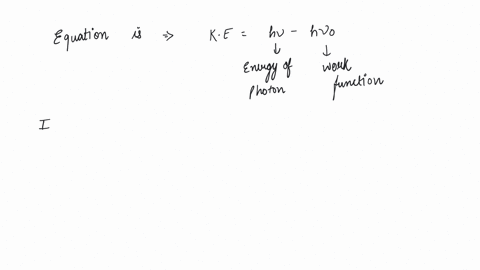 Equation is ⇒ K.E = hν - hν₀
↓ ↓
Energy of work
photon function
I